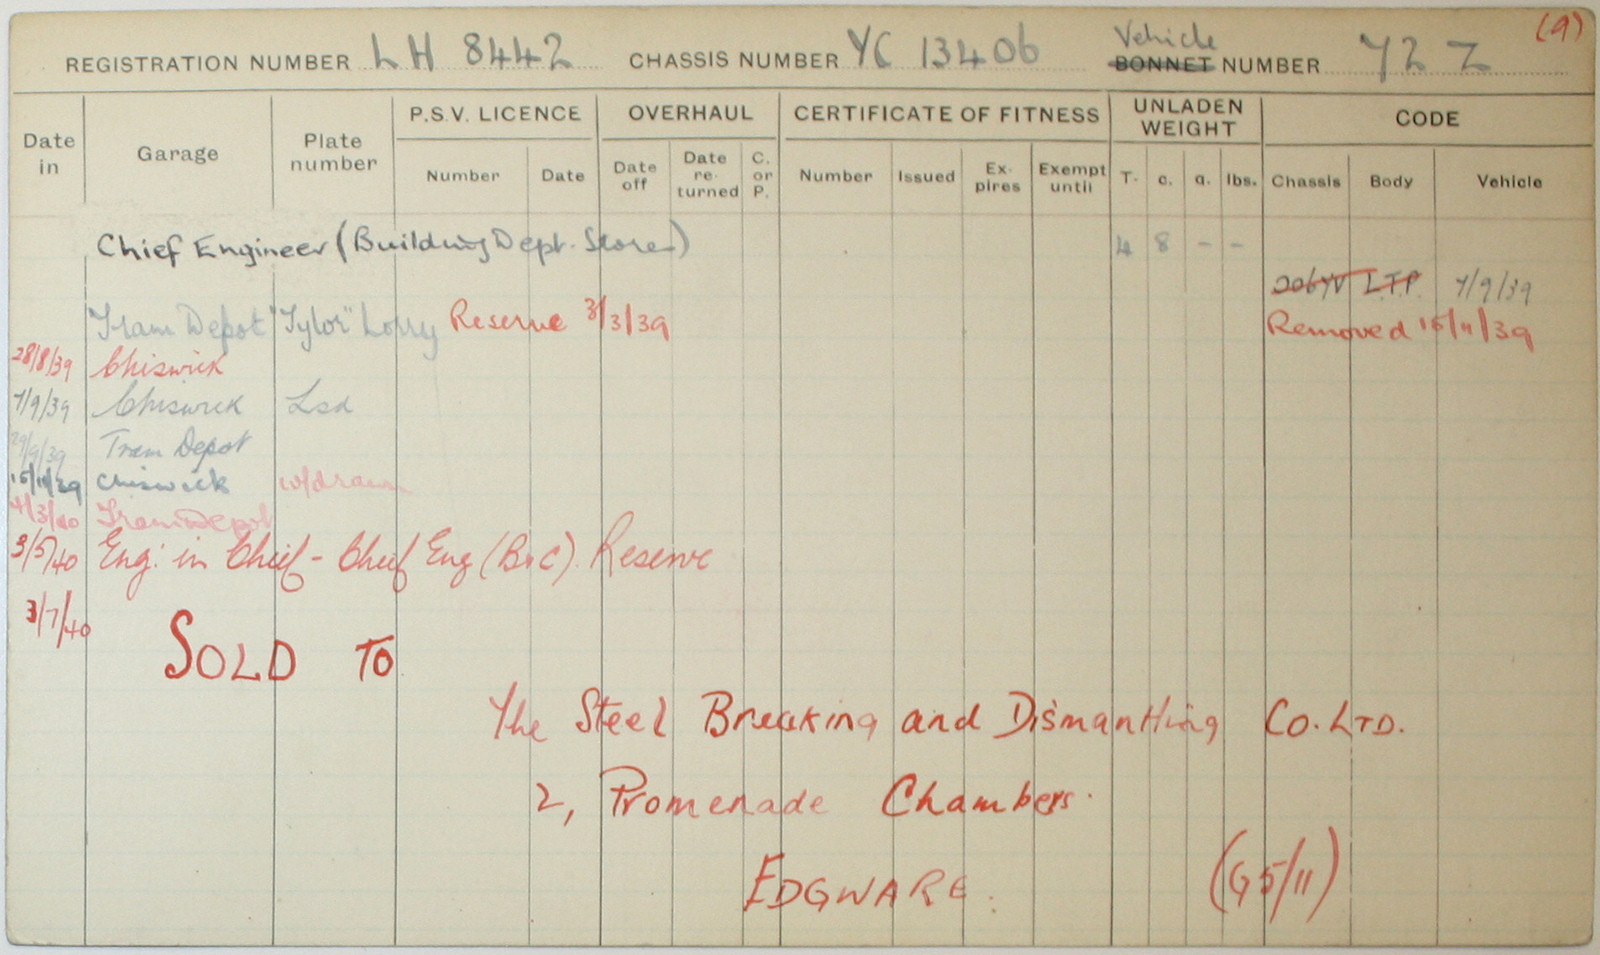 (9)
REGISTRATION NUMBER LH 8442 CHASSIS NUMBER YC 13406 Vehicle BONNET NUMBER 72 Z
Date in Garage Plate number P.S.V. LICENCE OVERHAUL CERTIFICATE OF FITNESS UNLADEN WEIGHT CODE
Number Date Date off Date re-turned C. or P. Number Issued Ex-pires Exempt until T. c. q. lbs. Chassis Body Vehicle
Chief Engineer (Building Dept. Stores) 4 8 - -
LTP. 7/9/39
Tram Depot "Tylor" Lorry Reserve 3/3/39 Removed 15/11/39
28/8/39 Chiswick
7/9/39 Chiswick Lsd
29/9/39 Tram Depot
15/11/39 Chiswick w/drawn
4/3/40 Tram Depot
3/5/40 Eng. in Chief - Chief Eng (B&C). Reserve
3/7/40
SOLD TO
The Steel Breaking and Dismantling CO. LTD.
2, Promenade Chambers.
EDGWARE. (G5/11)